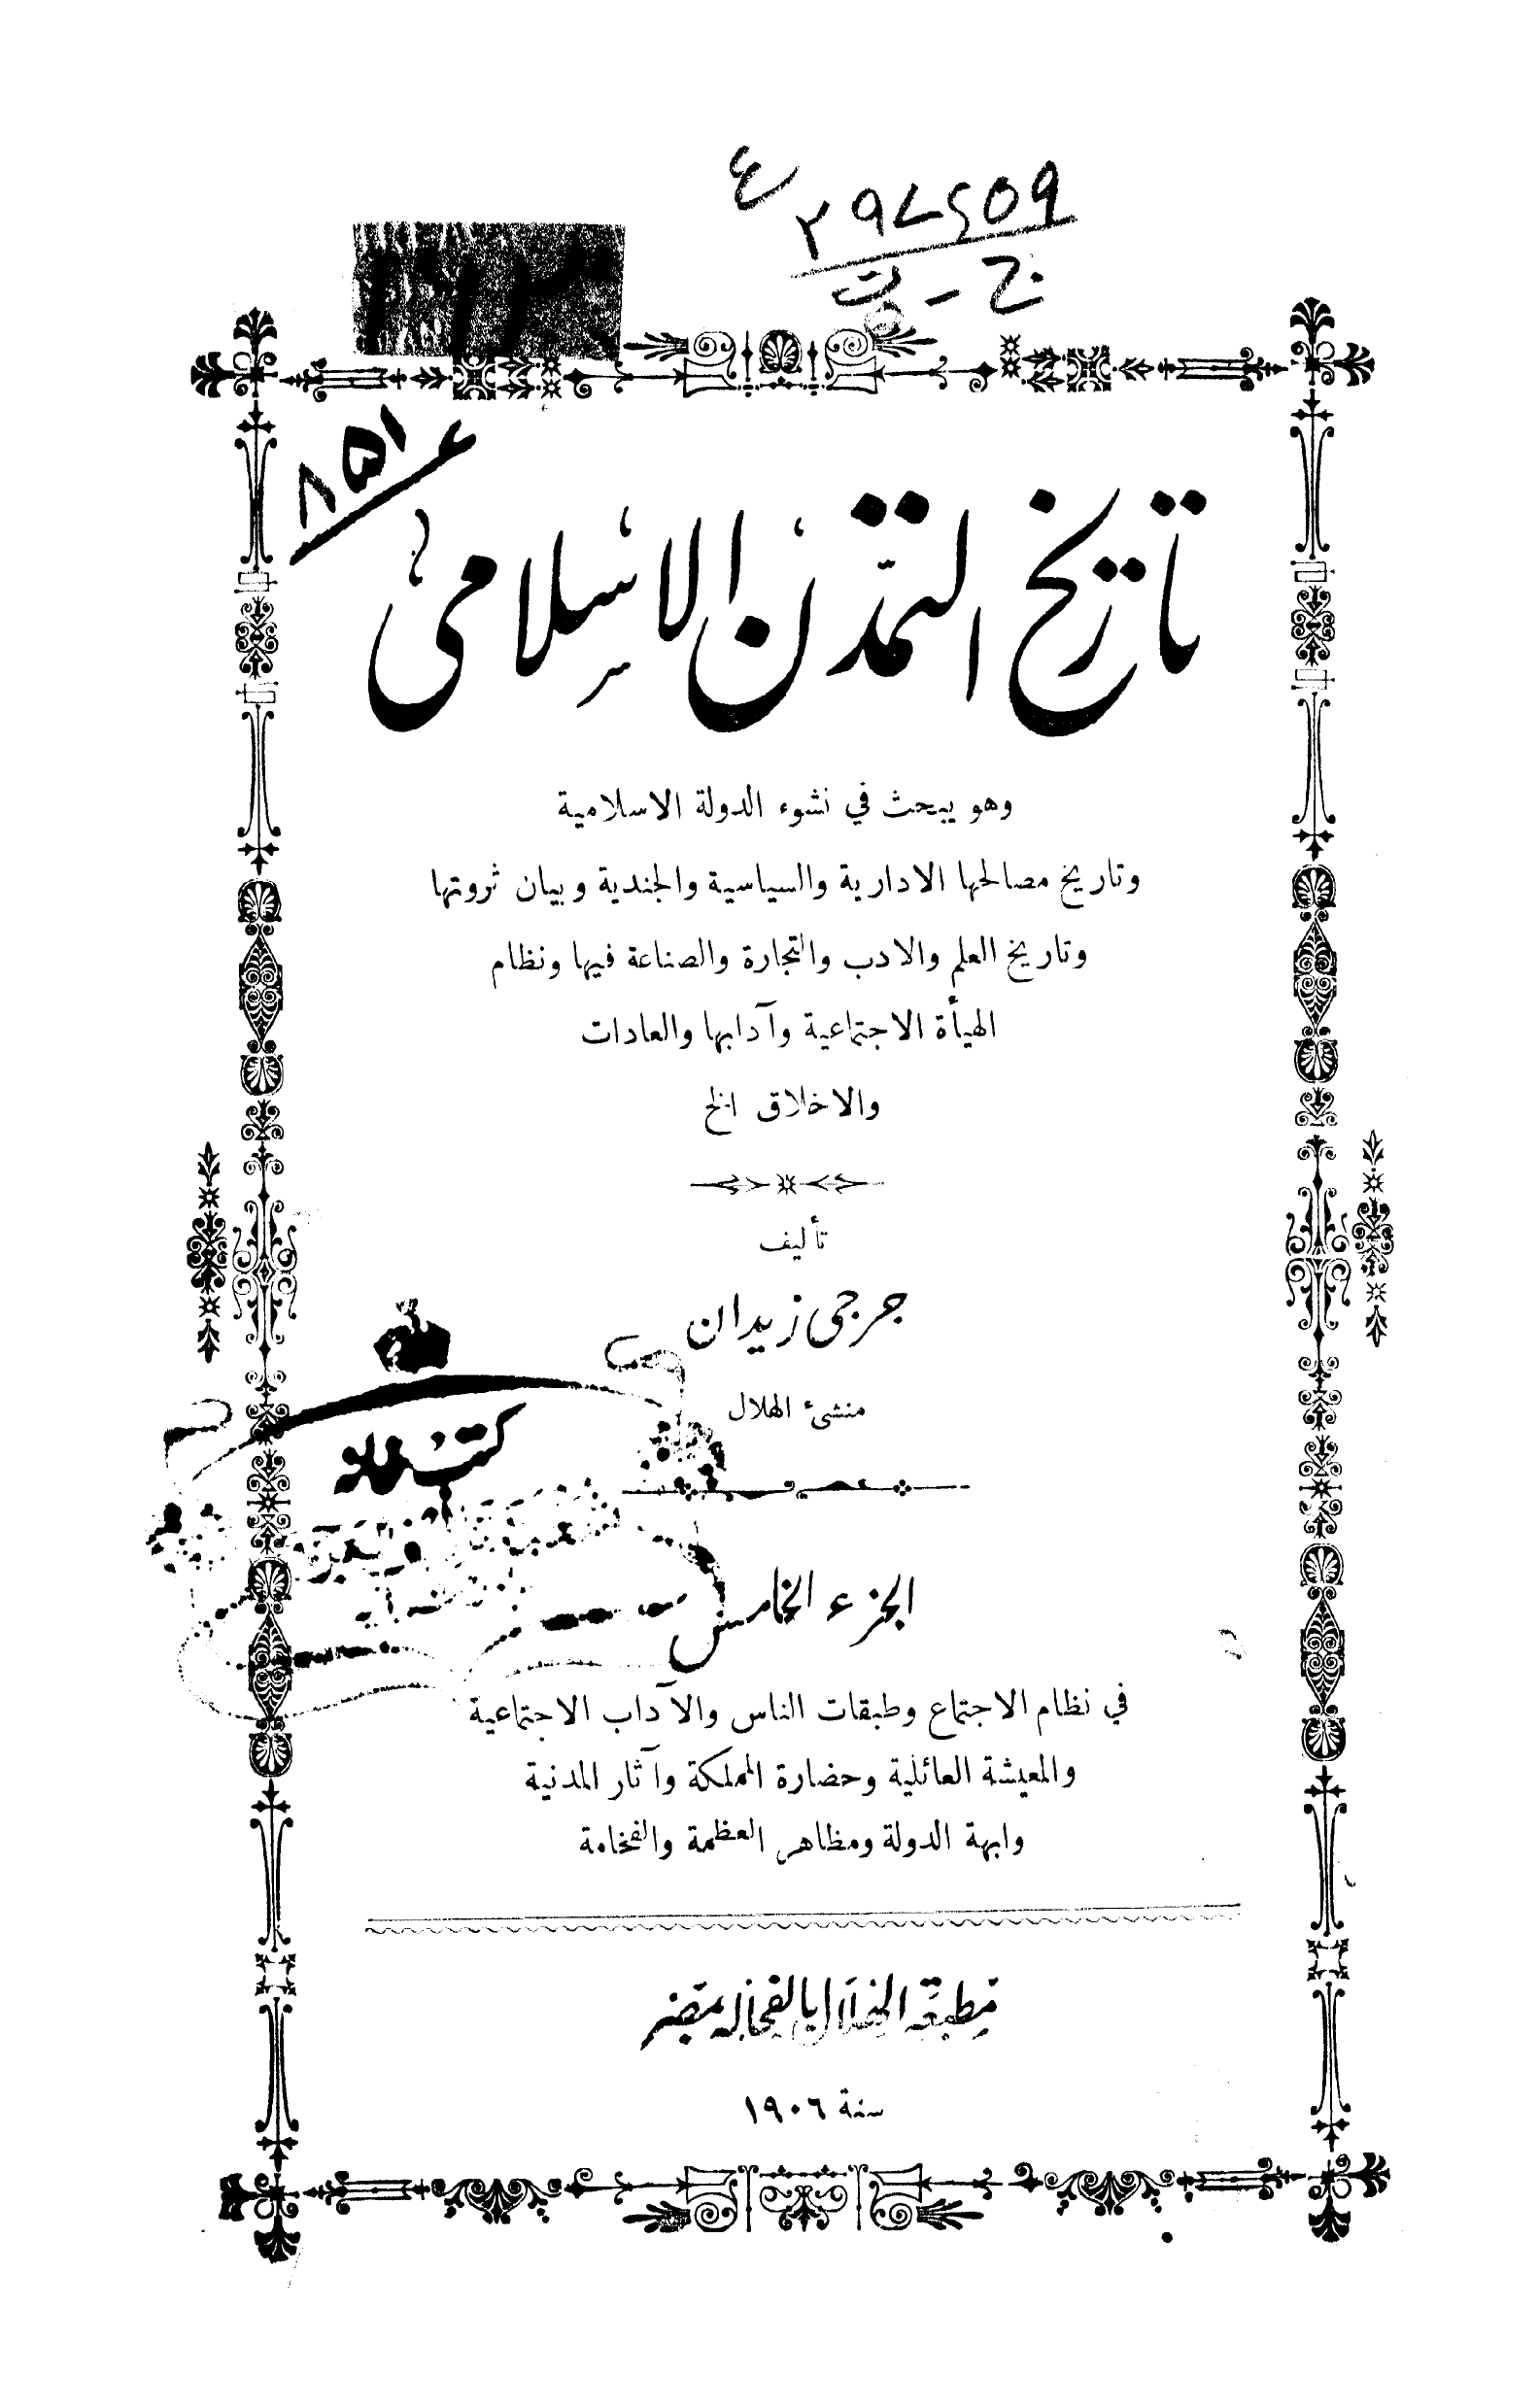 ٤
٢٩٧٤٥٩
ج - ت
٨٥١
تاريخ التمدّن الاسلامي
وهو يبحث في نشوء الدولة الاسلامية
وتاريخ مصالحها الادارية والسياسية والجندية وبيان ثروتها
وتاريخ العلم والادب والتجارة والصناعة فيها ونظام
الهيأة الاجتماعية وآدابها والعادات
والاخلاق الخ
تأليف
جرجي زيدان
منشئ الهلال
الجزء الخامس
في نظام الاجتماع وطبقات الناس والآداب الاجتماعية
والمعيشة العائلية وحضارة المملكة وآثار المدنية
وابهة الدولة ومظاهر العظمة والفخامة
مطبعة الهلال بالفجالة بمصر
سنة ١٩٠٦